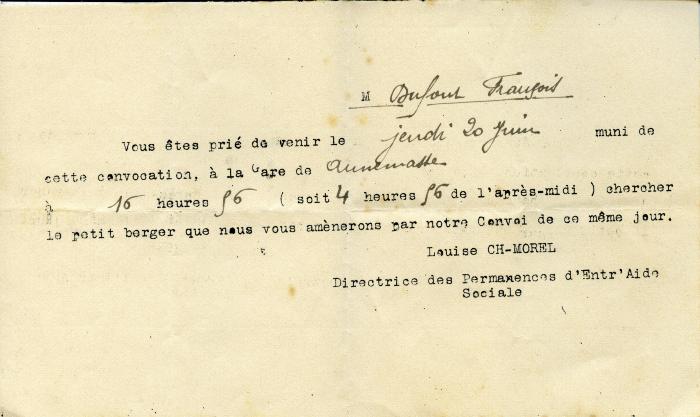 M Dufour François
Vous êtes prié de venir le jeudi 20 Juin muni de
cette convocation, à la Gare de Annemasse
à 16 heures 56 ( soit 4 heures 56 de l'après-midi ) chercher
le petit berger que nous vous amènerons par notre Convoi de ce même jour.
Louise CH-MOREL
Directrice des Permanences d'Entr'Aide
Sociale